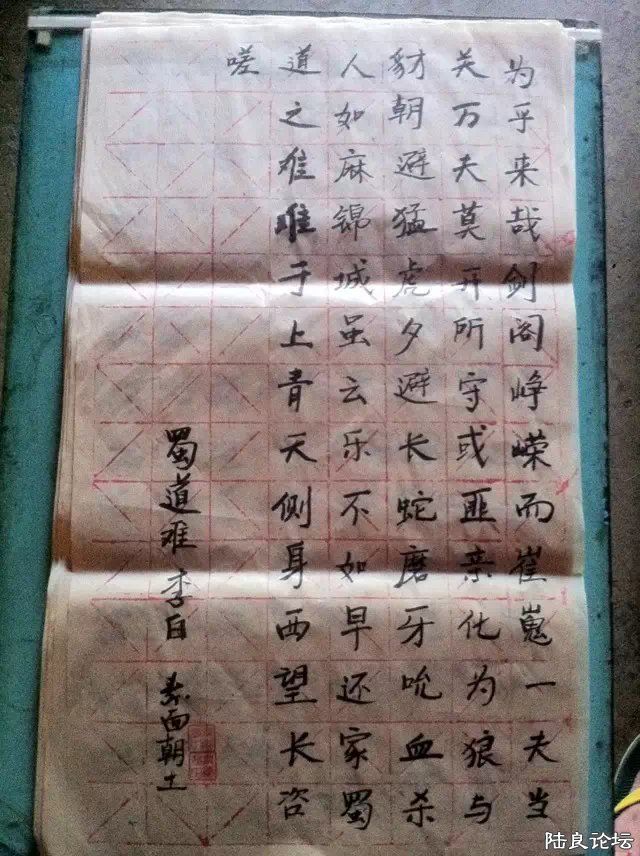 为乎来哉剑阁峥嵘而崔嵬一夫当
关万夫莫开所守或匪亲化为狼与
豺朝避猛虎夕避长蛇磨牙吮血杀
人如麻锦城虽云乐不如早还家蜀
道之难难于上青天侧身西望长咨
嗟
蜀道难 李白 素面朝土
陆良论坛